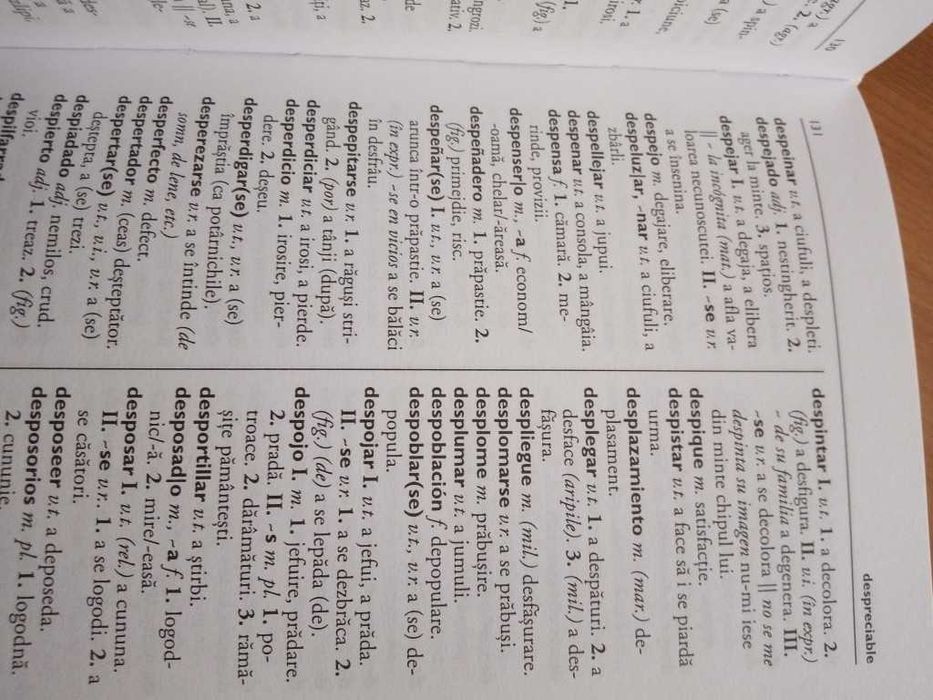 131
despreciable
despeinar v.t. a ciufuli, a despleti.
despejado adj. 1. nestingherit. 2.
ager la minte. 3. spațios.
despejar I. v.t. a degaja, a elibera
|| - la incógnita (mat.) a afla va-
loarea necunoscutei. II. -se v.r.
a se însenina.
despejo m. degajare, eliberare.
despeluz|ar, -nar v.t. a ciufuli, a
zbârli.
despellejar v.t. a jupui.
despenar v.t. a consola, a mângâia.
despensa f. 1. cămară. 2. me-
rinde, provizii.
despenser|o m., -a f. econom/
-oamă, chelar/-ăreasă.
despeñadero m. 1. prăpastie. 2.
(fig.) primejdie, risc.
despeñar(se) I. v.t., v.r. a (se)
arunca într-o prăpastie. II. v.r.
(în expr.) -se en vicios a se bălăci
în desfrâu.
despitarse v.r. 1. a răguși stri-
gând. 2. (por) a tânji (după).
desperdiciar v.t. a irosi, a pierde.
desperdicio m. 1. irosire, pier-
dere. 2. deșeu.
desperdigar(se) v.t., v.r. a (se)
împrăștia (ca potârnichile).
desperezarse v.r. a se întinde (de
somn, de lene, etc.)
desperfecto m. defect.
despertador m. (ceas) deșteptător.
despertar(se) v.t., v.i., v.r. a (se)
deștepta, a (se) trezi.
despiadado adj. nemilos, crud.
despierto adj. 1. treaz. 2. (fig.)
vioi.
despintar I. v.t. 1. a decolora. 2.
(fig.) a desfigura. II. v.i. (în expr.)
- de su familia a degenera. III.
-se v.r. a se decolora || no se me
despinta su imagen nu-mi iese
din minte chipul lui.
despique m. satisfacție.
despistar v.t. a face să i se piardă
urma.
desplazamiento m. (mar.) de-
plasament.
desplegar v.t. 1. a despături. 2. a
desface (aripile). 3. (mil.) a des-
fășura.
despliegue m. (mil.) desfășurare.
desplomarse v.r. a se prăbuși.
desplome m. prăbușire.
desplumar v.t. a jumuli.
despoblación f. depopulare.
despoblar(se) v.t., v.r. a (se) de-
popula.
despojar I. v.t. a jefui, a prăda.
II. -se v.r. 1. a se dezbrăca. 2.
(fig.) (de) a se lepăda (de).
despojo I. m. 1. jefuire, prădare.
2. pradă. II. -s m. pl. 1. po-
troace. 2. dărâmături. 3. rămă-
șițe pământești.
desportillar v.t. a știrbi.
desposad|o m., -a f. 1. logod-
nic/-ă. 2. mire/-easă.
desposar I. v.t. (rel.) a cununa.
II. -se v.r. 1. a se logodi. 2. a
se căsători.
desposeer v.t. a deposeda.
desposorios m. pl. 1. logodnă.
2. cununie.